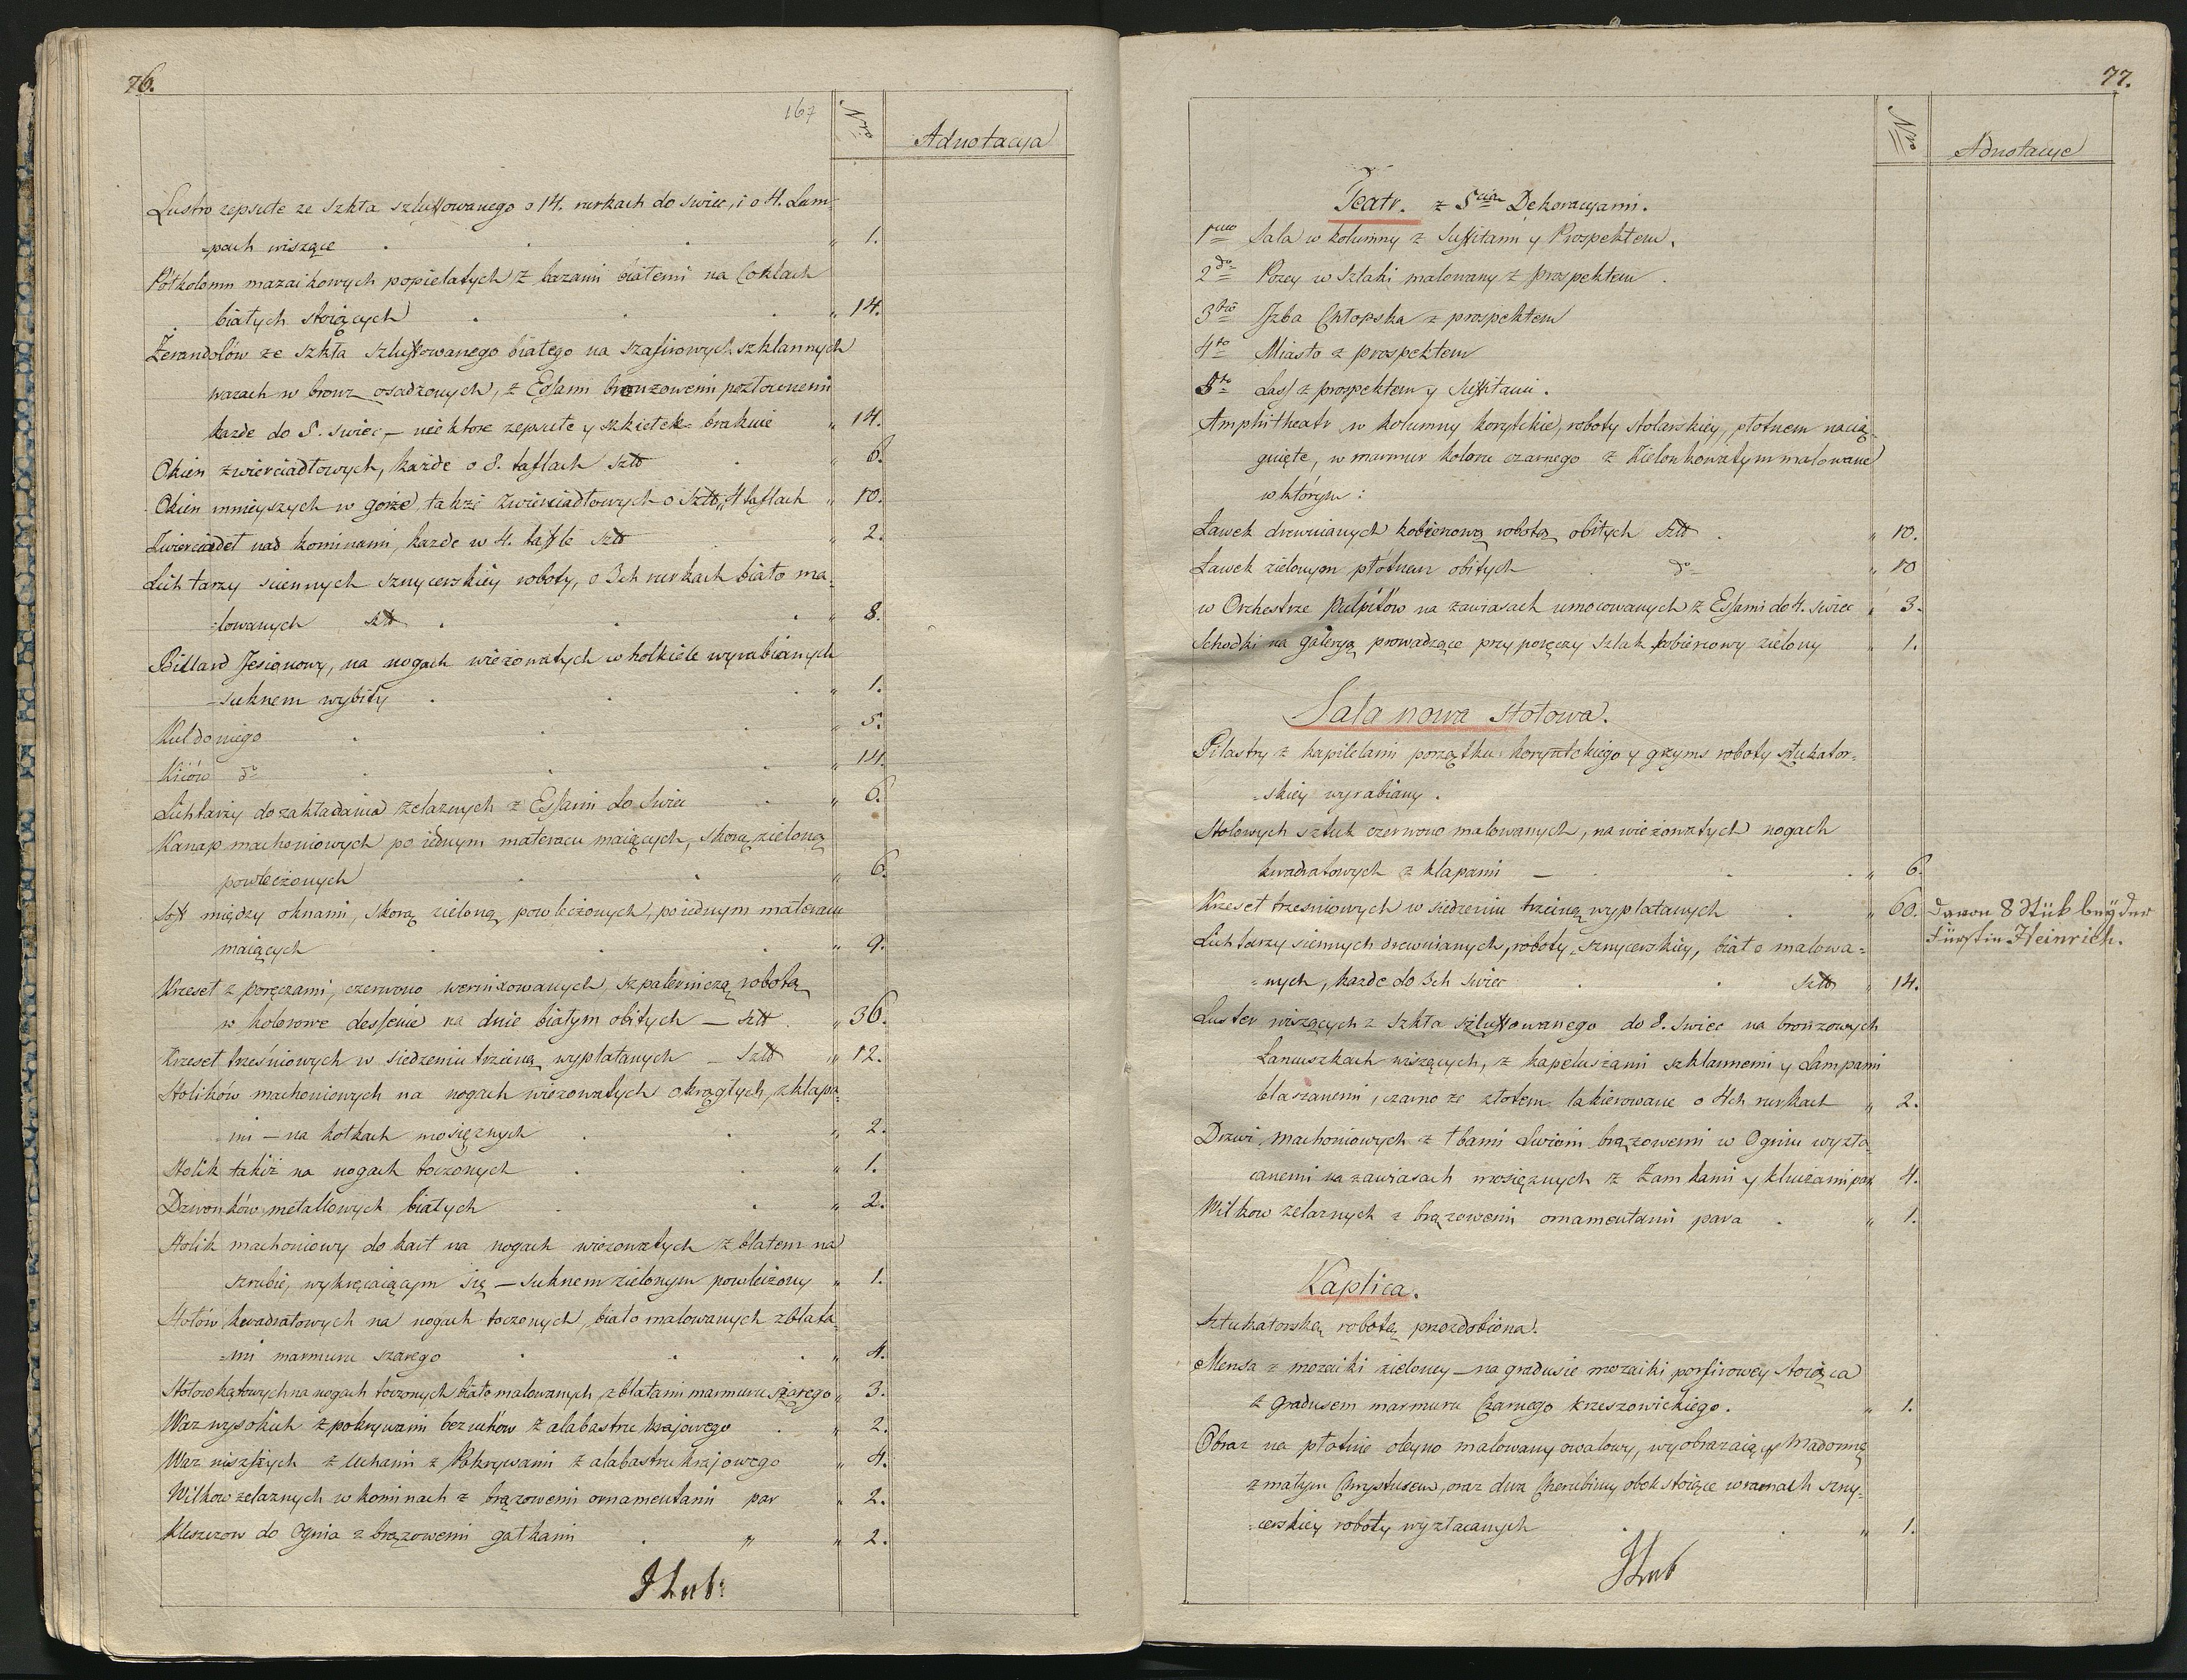 76.
167
Nro
Adnotacya
Lustro zepsute ze szkła szluffowanego o 14. rurkach do swiec, i o 4. Lam=
=pach wiszące " 1.
Półkolomn mazaikowych popielatych z bazami białemi na Coklach
białych stoiących " 14.
Żerandolów ze szkła szluffowanego białego na szafirowych szklannych
wazach w bronz osadzonych, z Essami bronzowemi pozłocznemi
każde do 5. swiec — niektóre zepsute y szkiełek brakuie " 14.
Okien zwierciadłowych, każde o 8. taflach szt " 6.
Okien mnieyszych w górze, także zwierciadłowych o szt, 4 taflach " 10.
Zwierciadeł nad kominami, każde w 4. tafle szt " 2.
Lichtarzy sciennych sznycerskiey roboty, o 3ch rurkach biało ma=
=lowanych szt " 8.
Billard Jesionowy, na nogach wieżowatych w holkiele wyrabianych
suknem wybity " 1.
Kul do niego " 5.
Kiiów do " 14.
Lichtarzy do zakładania żelaznych z Essami do Swiec " 6.
Kanap machoniowych po iednym materacu maiących, skorą zieloną
powleczonych " 6.
Soff między oknami, skorą zieloną powleczonych, po iednym materacu
maiących " 9.
Krzeseł z poręczami, czerwono wernixowanych, szpalerniczą robotą
w kolorowe dessenie na dnie białym obitych — szt " 36.
Krzeseł trześniowych w siedzeniu trzciną wyplatanych — szt " 12.
Stolików machoniowych na nogach wieżowatych okrągłych, z klapa=
=mi — na kołkach mosiężnych " 2.
Stolik takiż na nogach toczonych " 1.
Dzwonków metallowych białych " 2.
Stolik machoniowy do kart na nogach wieżowatych z blatem na
szrubie, wykręcaiącym się — suknem zielonym powleczony " 1.
Stołów kwadratowych na nogach toczonych, biało malowanych z blata=
=mi marmuru szarego " 4.
Stołow kątowych na nogach toczonych biało malowanych, z blatami marmuru szarego " 3.
Waz wysokich z pokrywami bez uchów z alabastru krajowego " 2.
Waz niższych z Uchami z Pokrywami z alabastru krajowego " 4.
Wilkow żelaznych w kominach z brązowemi ornamentami par " 2.
Kleszczow do Ognia z brązowemi gałkami " " 2.
77.
Nro
Adnotacye
Teatr. z 5cia Dekoracyami.
1mo Sala w kolumny z Suffitami y Prospektem.
2do Pokoy w Szlaki malowany z prospektem.
3tio Izba Chłopska z prospektem
4to Miasto z prospektem
5to Lass z prospektem y Suffitami.
Amphitheatr w kolumny korytckie, roboty stolarskiey, płotnem nacią=
gnięte, w marmur koloru czarnego z Zielonkowatym malowane
w którym:
Ławek drewnianych kobiercową robotą obitych szt " 10.
Ławek zielonym płótnem obitych do " 10
w Orchestrze Pulpitów na zawiasach umocowanych z Essami do 4. swiec " 3.
Schodki na galeryą prowadzące przy poręczy szlak kobiercowy zielony " 1.
Sala nowa stołowa.
Pilastry z kapitelami porządku koryntckiego y gzyms roboty sztukator=
=skiey wyrabiany.
Stołowych sztuk czerwono malowanych, na wieżowatych nogach
kwadratowych z klapami — " 6.
Krzeseł trześniowych w siedzeniu trzciną wyplatanych " 60. davon 8 Stük bey der
Fürstin Heinrich.
Lichtarzy sciennych drewnianych, roboty sznycerskiey, biało malowa=
=nych, każde do 3ch swiec szt " 14.
Luster wiszących z szkła szluffowanego do 8. swiec na bronzowych
Łancuszkach wiszących, z kapeluszami szklannemi y Lampami
blaszanemi, czarno ze złotem lakierowane o 4ch rurkach " 2.
Drzwi machoniowych z łbami Lwiemi brązowemi w Ogniu wyzła=
canemi na zawiasach mosiężnych z Zamkami y kluczami par 4.
Wilkow żelaznych z brązowemi ornamentami para " 1.
Kaplica.
Sztukatorską robotą przozdobiona.
Mensa z mozaiki zieloney — na gradusie mozaiki porfirowey stoiąca
z gradusem marmuru Czarnego krzeszowickiego. " 1.
Obraz na płótnie oleyno malowany owalowy, wyobrazaiący Madonnę
z małym Chrystusem, oraz dwa Cherubiny obok stoiące w ramach szny=
=cerskiey roboty wyzłacanych " 1.